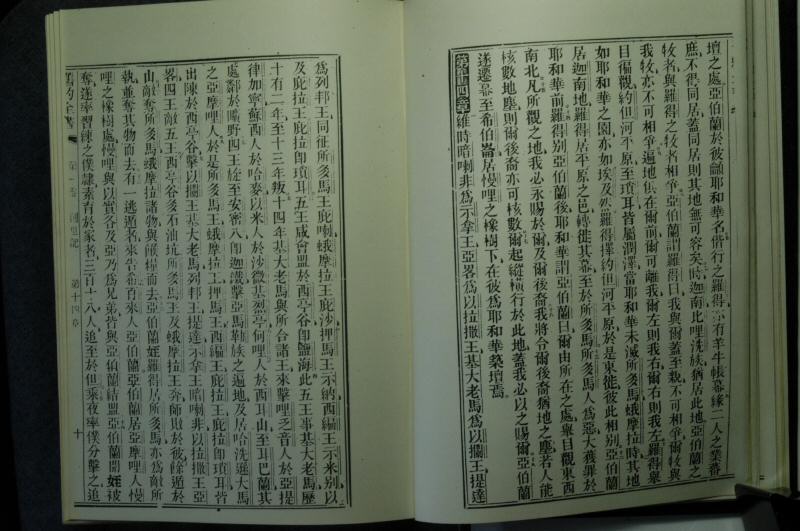 壇之處亞伯蘭於彼龥耶和華名偕行之羅得亦有羊牛帳幕緣二人之業蕃
庶不得同居蓋同居則其地無可容矣時迦南比哩洗族猶居此地亞伯蘭之
牧者與羅得之牧者相爭亞伯蘭謂羅得曰我與爾蓋至親不可相爭爾牧與
我牧亦不可相爭遍地俱在爾前爾可離我爾左則我右爾右則我左羅得舉
目徧觀約但河平原至瑣耳皆屬潤澤當耶和華未滅所多馬蛾摩拉時其地
如耶和華之園亦如埃及然羅得擇約但河平原於是東徙彼此相别亞伯蘭
居迦南地羅得居平原之邑轉徙其幕至於所多馬所多馬人為惡大獲罪於
耶和華前羅得别亞伯蘭後耶和華謂亞伯蘭曰爾由所在之處舉目觀東西
南北凡所觀之地我必永賜於爾及爾後裔我將令爾後裔猶地之塵若人能
核數地塵則爾後裔亦可核數爾起縱橫行於此地蓋我必以之賜爾亞伯蘭
遂遷幕至希伯崙居慢哩之橡樹下在彼為耶和華築壇焉
第十四章維時暗喇非為示拿王亞畧為以拉撒王基大老馬為以攔王提達
為列邦王同征所多馬王庇喇蛾摩拉王庇沙押馬王示納西編王示米別以
及庇拉王庇拉即瑣耳五王咸會盟於西亭谷即鹽海此五王事基大老馬歷
十有二年至十三年叛十四年基大老馬與所合諸王來擊哩乏音人於亞提
律加寧蘇西人於哈麥以米人於沙微基烈亭何哩人於西耳山至耳巴蘭其
處鄰於曠野四王旋至安密八即迦鐵擊亞馬勒族之遍地及居哈洗遜大馬
之亞摩哩人於是所多馬王蛾摩拉王押馬王西編王庇拉王庇拉即瑣耳皆
出陳於西亭谷擊以攔王基大老馬列邦王提達示拿王暗喇非以拉撒王亞
畧四王敵五王西亭谷多石油坑所多馬王及蛾摩拉王奔師敗於彼餘遁於
山敵奪所多馬蛾摩拉諸物與餱糧而去亞伯蘭姪羅得居所多馬亦為敵所
執並奪其物而去有一逃遁者來告希百來人亞伯蘭亞伯蘭居亞摩哩人慢
哩之橡樹處慢哩與以實谷及亞乃為兄弟皆與亞伯蘭結盟亞伯蘭聞姪被
奪遂率習練之僕隸素育於家者三百十八人追至於但乘夜率僕分擊之追
舊約全書
創世記
第十四章
十